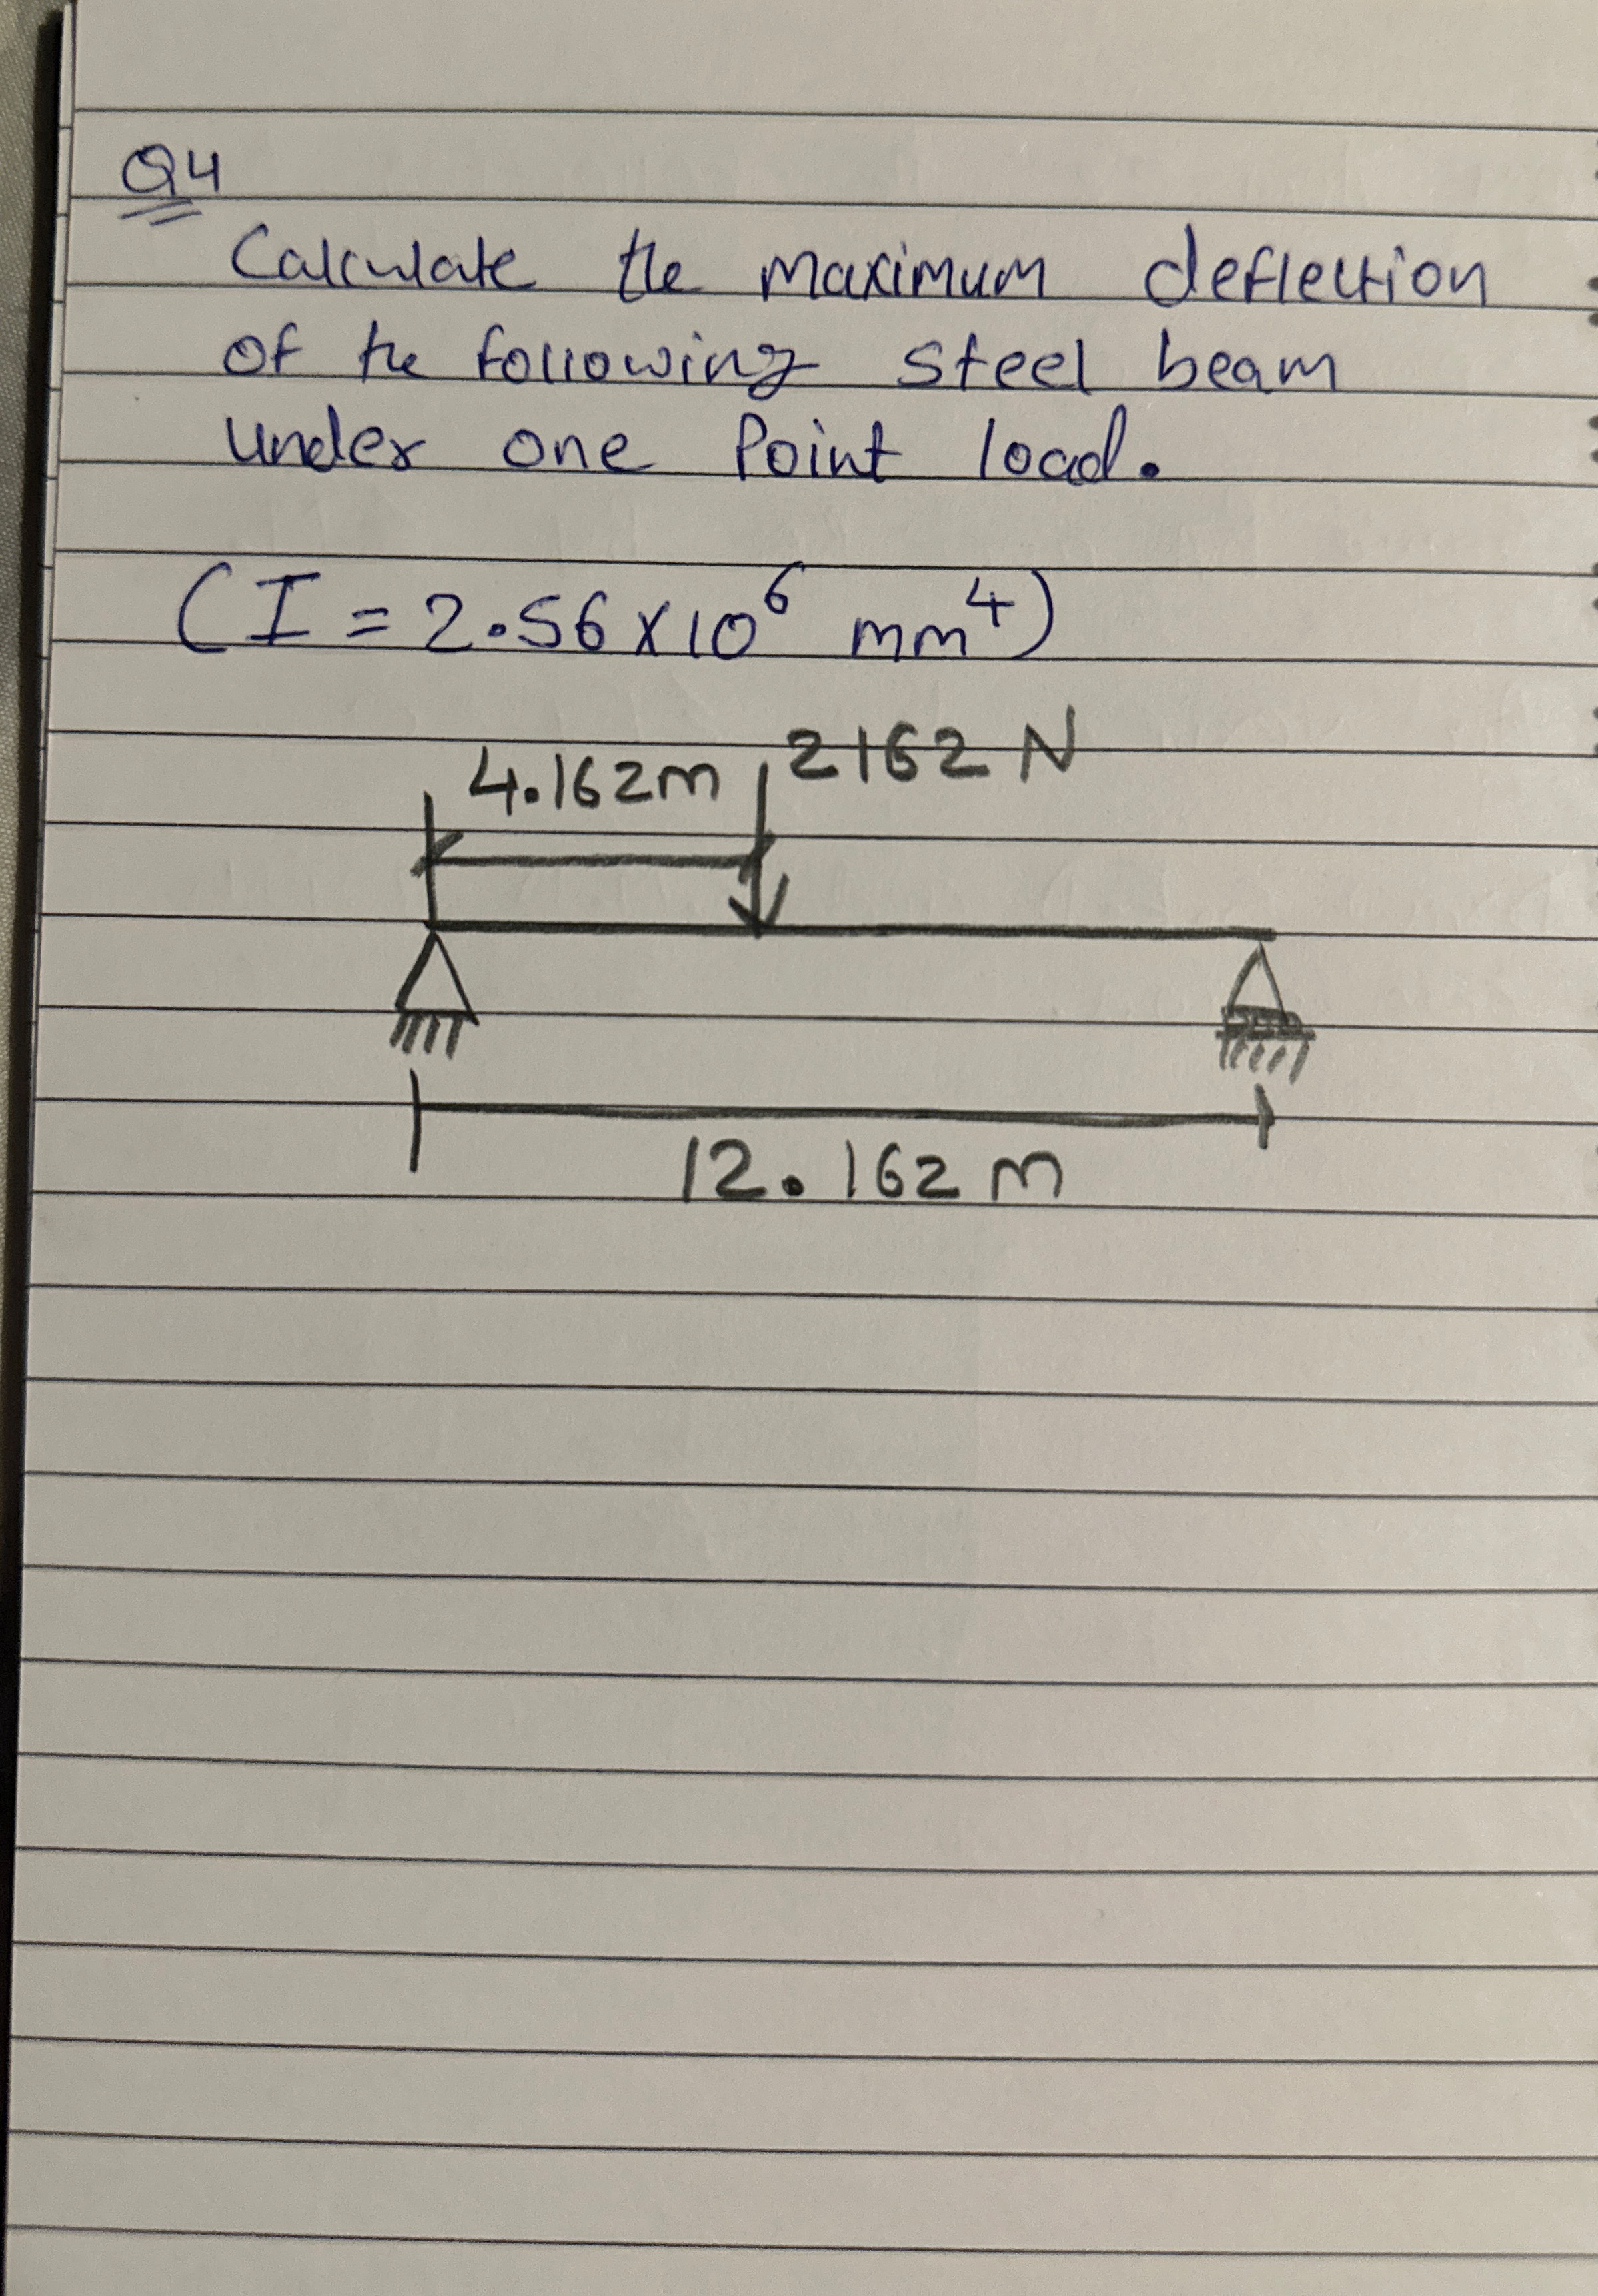 Q4
Calculate the maximum deflection
of the following steel beam
under one Point load.
(I = 2.56x10⁶ mm⁴)
4.162m 2162 N
12.162 m